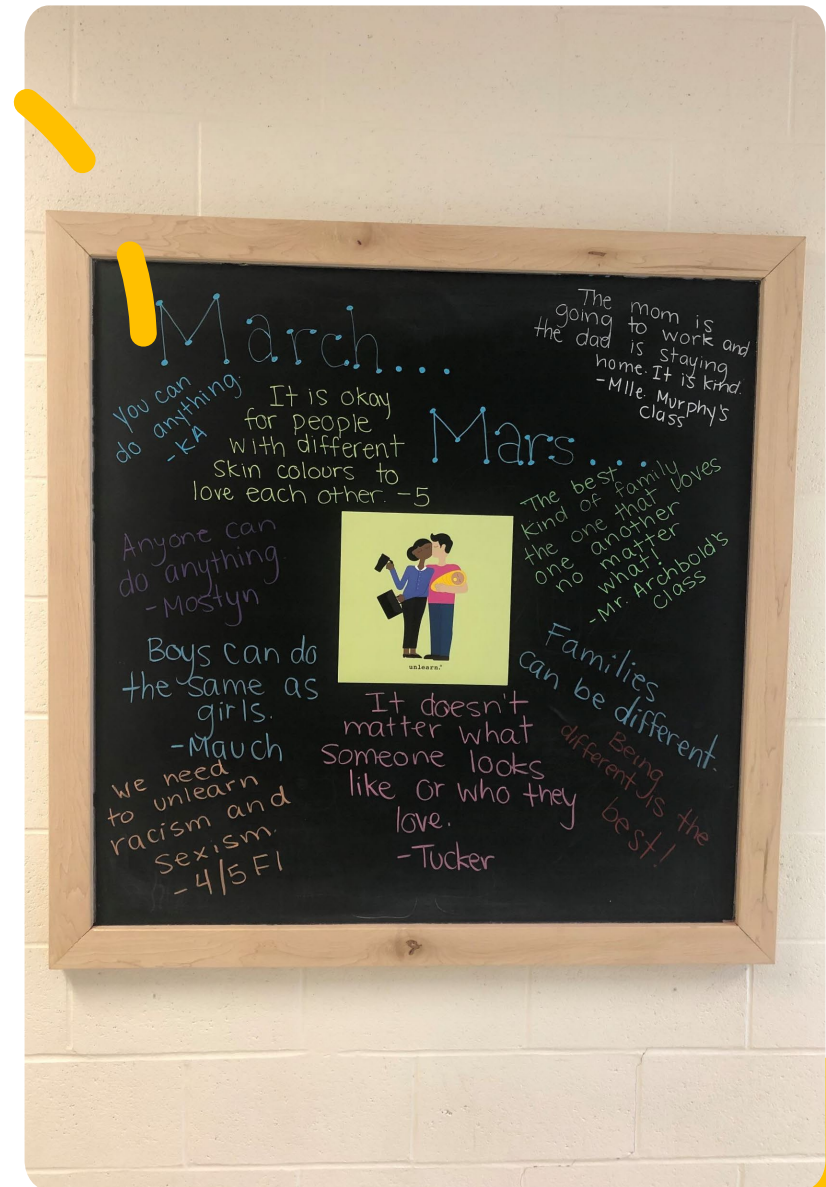 March...
Mars....
The mom is
going to work and
the dad is staying
home. It is kind.
-Mlle. Murphy's
class
You can
do anything.
-KA
It is okay
for people
with different
skin colours to
love each other. -5
The best
kind of family
the one that loves
one another
no matter
what!
-Mr. Archbold's
class
Anyone can
do anything.
-Mostyn
unlearn.
Boys can do
the same as
girls.
-Mauch
Families
can be different.
Being
different is the
best!
It doesn't
matter what
someone looks
like or who they
love.
-Tucker
We need
to unlearn
racism and
sexism.
-4/5 FI